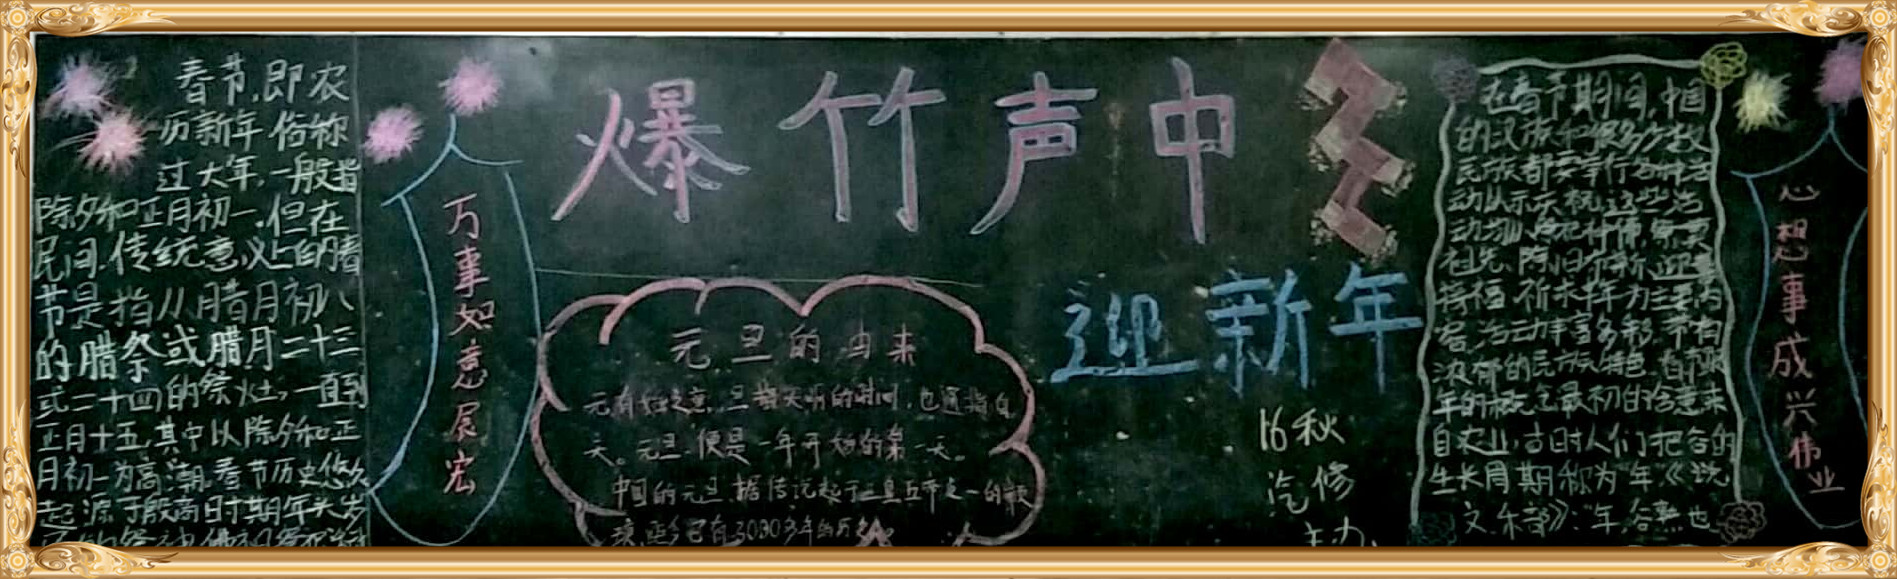 春节,即农
历新年,俗称
过大年,一般指
除夕和正月初一.但在
民间.传统意义上的腊
节是指从腊月初八
的腊祭或腊月二十三
或二十四的祭灶,一直到
正月十五,其中以除夕和正
月初一为高潮.春节历史悠久
起源于殷商时期年头岁
万事如意展宏
爆竹声中
迎新年
元旦的由来
元有始之意,旦指天明的时间,也通指白
天。元旦便是一年开始的第一天。
中国的元旦,据传说起于三皇五帝之一的颛
顼,距今已有3000多年的历史。
16秋
汽修
主办
在春节期间,中国
的汉族和很多少数
民族都要举行各种活
动以示庆祝.这些活
祖先.除旧布新.迎喜
接福.祈求年力主要内
容.活动丰富多彩.带有
浓郁的民族特色.春节
年的概念最初的含意来
自农业,古时人们把谷的
生长周期称为“年”《说
文.禾部》:“年,谷熟也
心想事成兴伟业